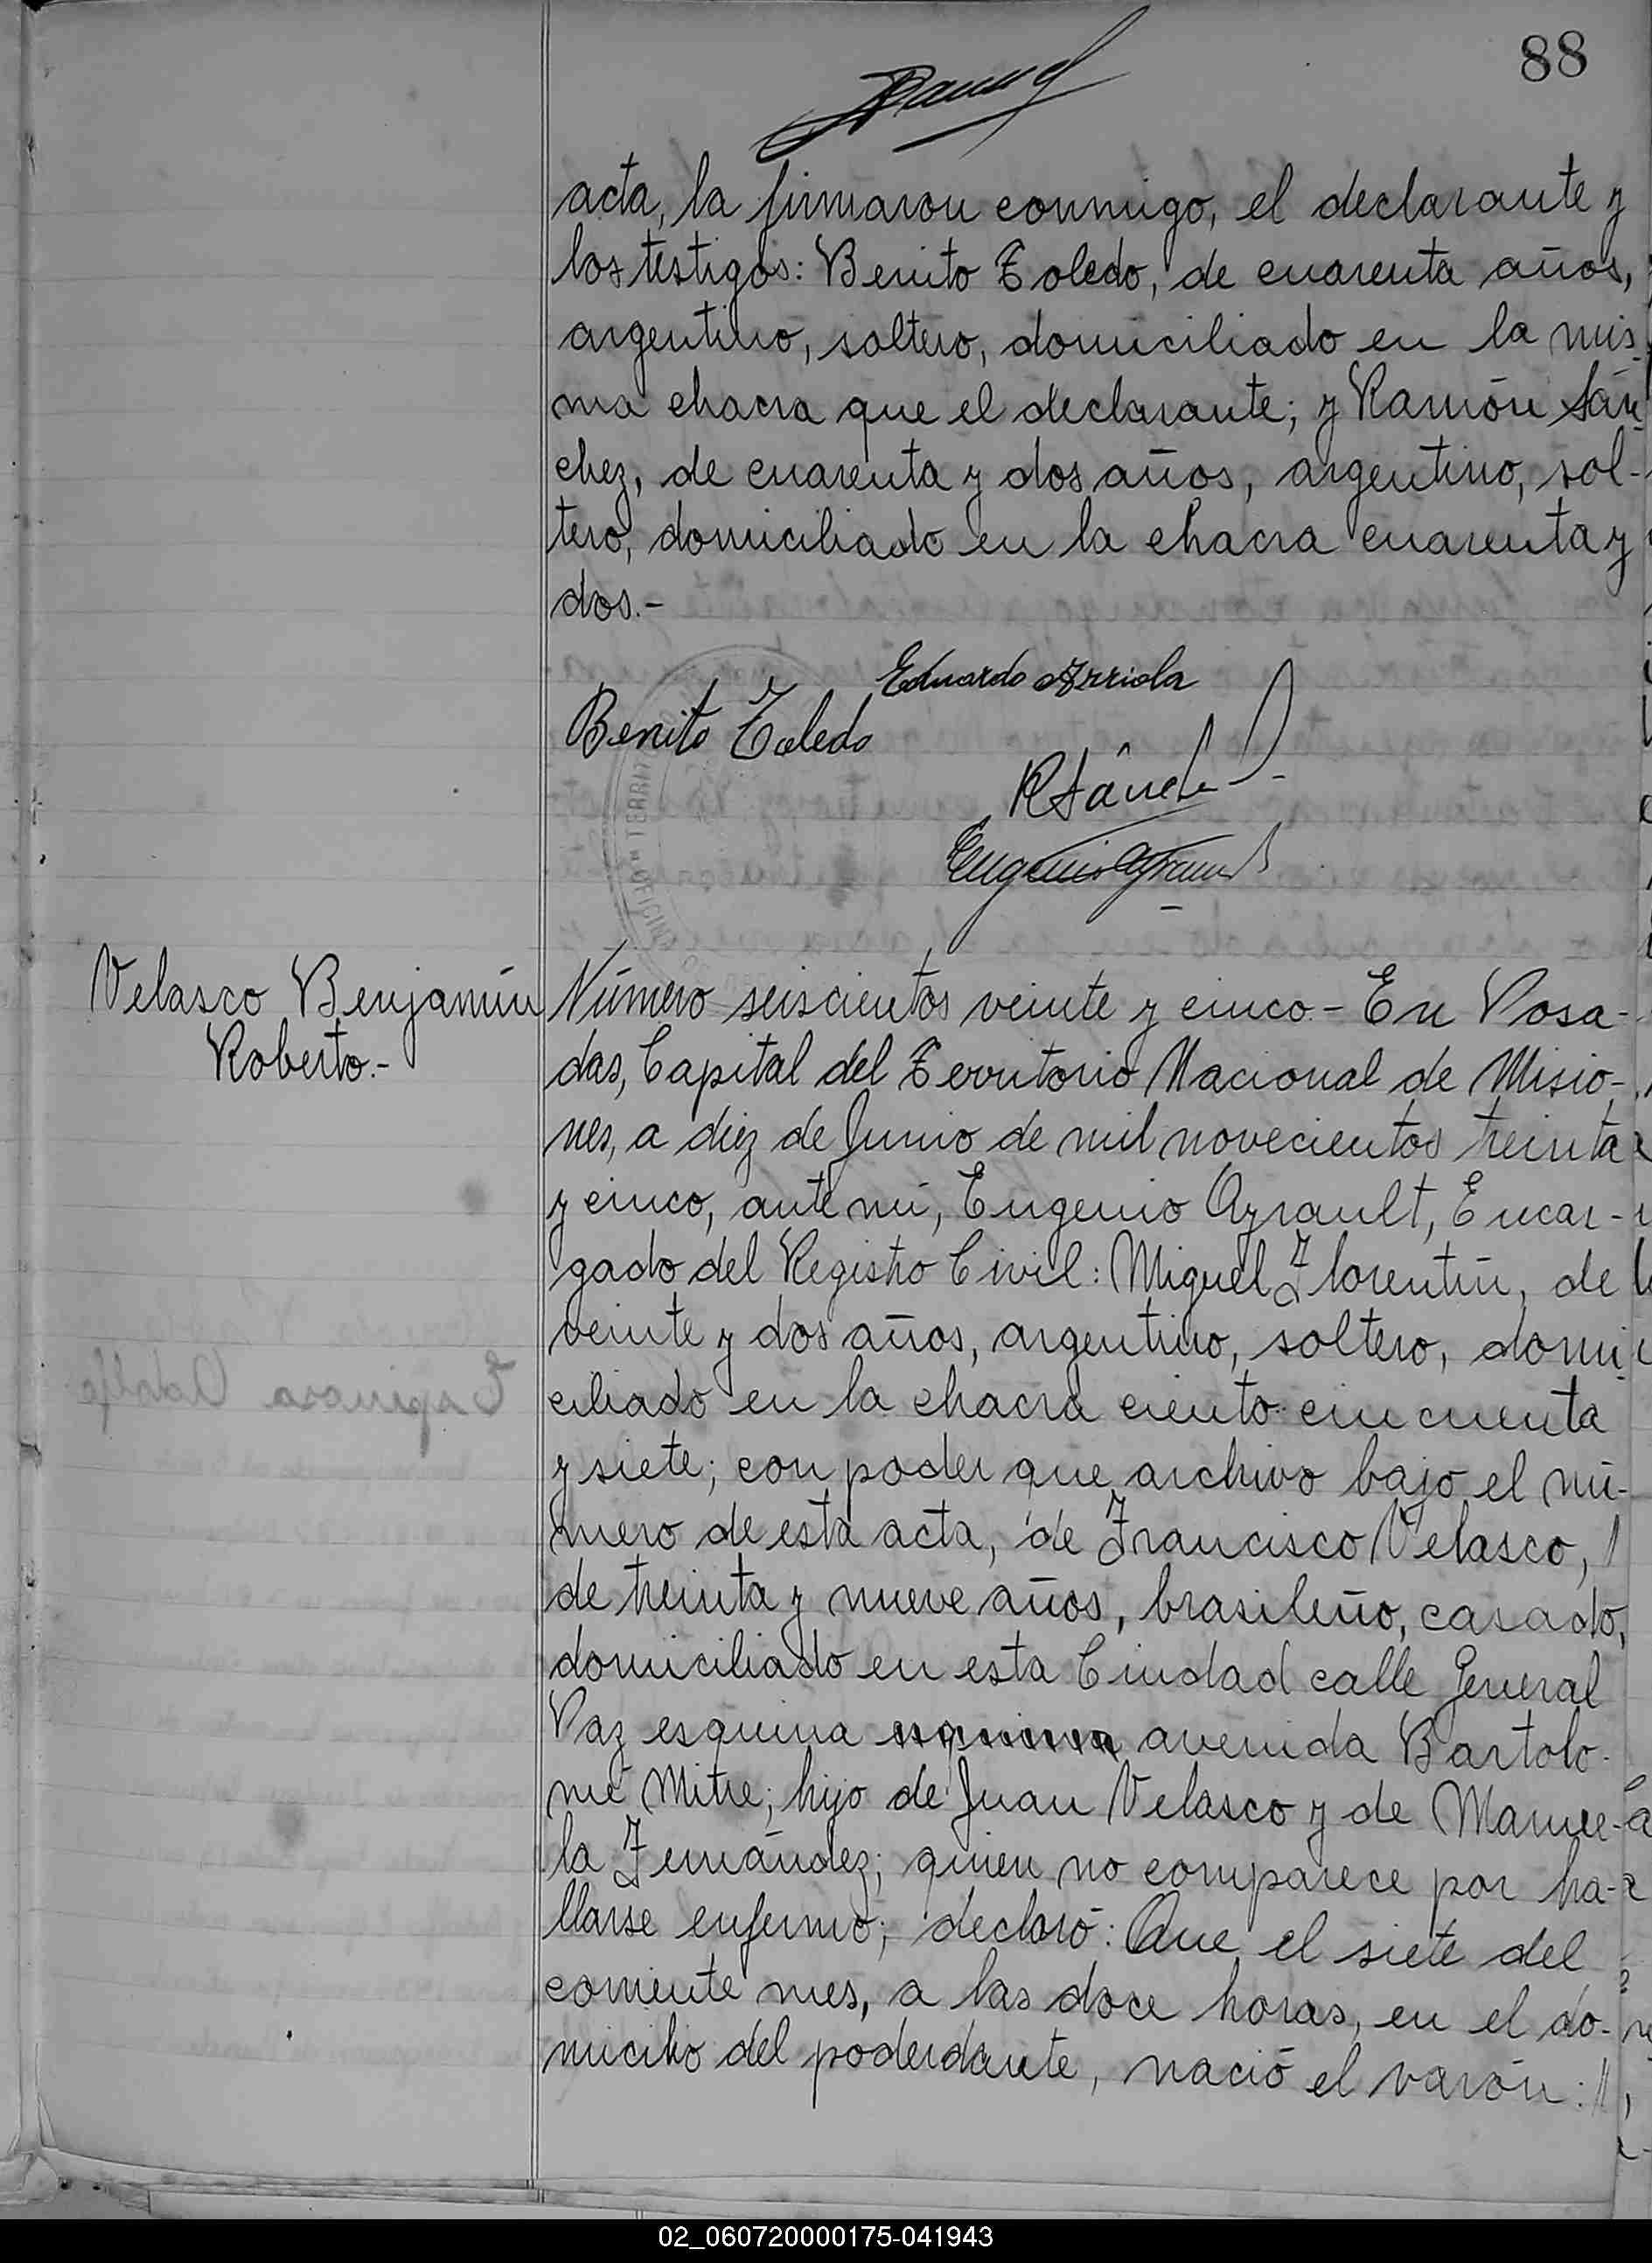 88
acta, la firmaron conmigo, el declarante y
los testigos: Benito Toledo, de cuarenta años,
argentino, soltero, domiciliado en la mis-
ma chacra que el declarante; y Ramón Sán-
chez, de cuarenta y dos años, argentino, sol-
tero, domiciliado en la chacra cuarenta y
dos.-
Eduardo Arriola
Benito Toledo
R Sánchez
Eugenio Ayrault
Velasco Benjamín
Roberto.-
Número seiscientos veinte y cinco.- En Posa-
das, Capital del Territorio Nacional de Misio-
nes, a diez de Junio de mil novecientos treinta
y cinco, ante mí, Eugenio Ayrault, Encar-
gado del Registro Civil: Miguel Florentín, de
veinte y dos años, argentino, soltero, domi-
ciliado en la chacra ciento cincuenta
y siete; con poder que archivo bajo el nú-
mero de esta acta, de Francisco Velasco,
de treinta y nueve años, brasileño, casado,
domiciliado en esta Ciudad calle General
Paz esquina esquina avenida Bartolo-
mé Mitre; hijo de Juan Velasco y de Manue-
la Fernández; quien no comparece por ha-
llarse enfermo; declaró: Que el siete del
corriente mes, a las doce horas, en el do-
micilio del poderdante, nació el varón:
02_060720000175-041943